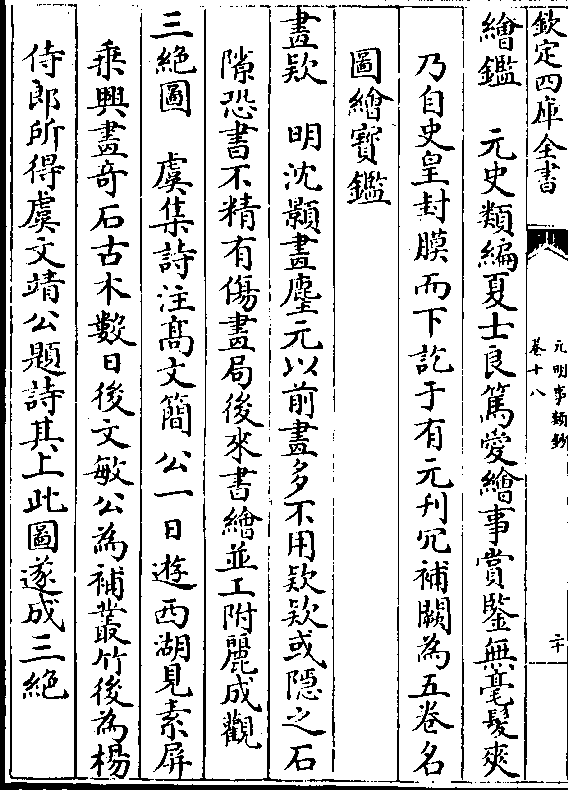 欽定四庫全書
元明事類鈔
卷十八
二十
繪鑑　元史類編夏士良篤愛繪事賞鑒無毫髮爽
乃自史皇封膜而下訖于有元刋冗補闕為五卷名
圖繪寳鑑
畫欵　明沈顥畫麈元以前畫多不用欵欵或隠之石
隙恐書不精有傷畫局後來書繪並工附麗成觀
三絶圖　虞集詩注髙文簡公一日遊西湖見素屏
乗興畫竒石古木數日後文敏公為補叢竹後為楊
侍郎所得虞文靖公題詩其上此圖遂成三絶